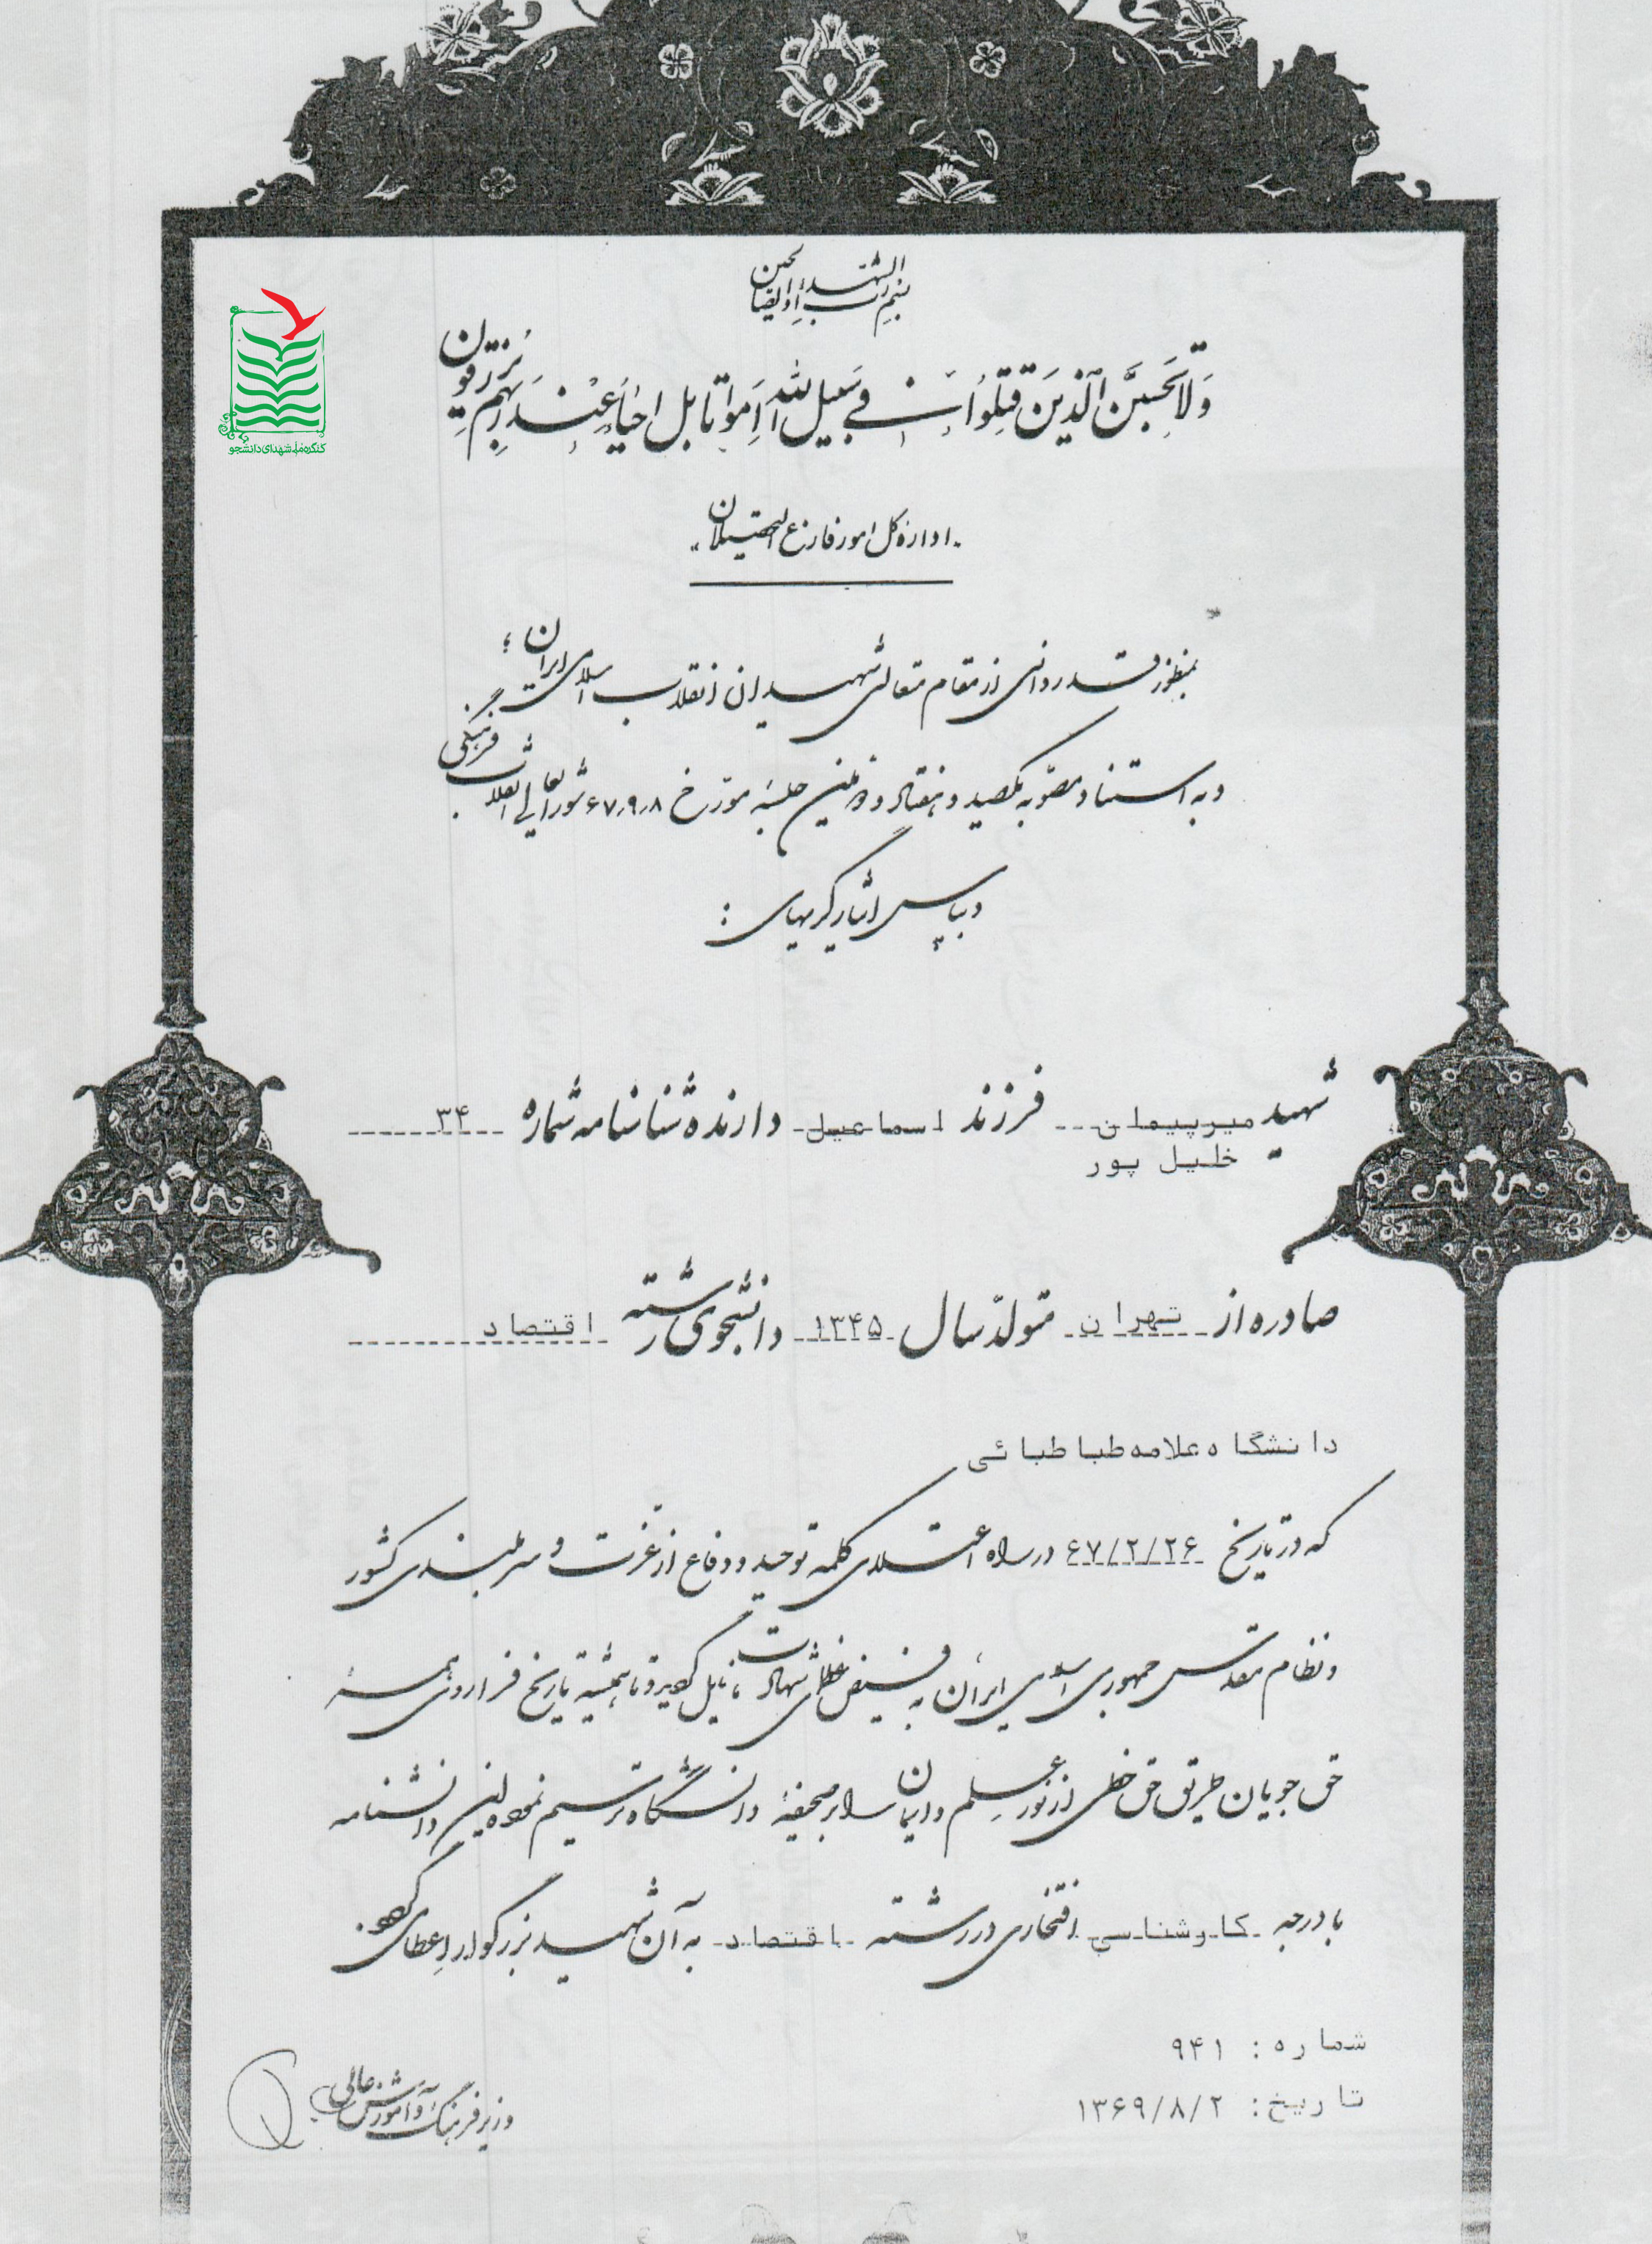 بسم رب الشهداء و الصالحین
وَلا تَحْسَبَنَّ الَّذینَ قُتِلُوا فی سَبیلِ اللهِ اَمْواتاً بَل اَحْیاءٌ عِنْدَ رَبِّهِم یُرْزَقُون
کنگره ملی شهدای دانشجو
اداره کل امور فارغ التحصیلان
بمنظور قدردانی از مقام متعالی شهیدان انقلاب اسلامی ایران ؛
و به استناد مصوبه یکصد و هفتاد و دومین جلسه مورخ ۶۷٫۹٫۸ شورایعالی انقلاب فرهنگی
و بپاس ایثارگریهای :
شهید میرپیمان فرزند اسماعیل دارنده شناسنامه شماره ۳۴
خلیل پور
صادره از تهران متولد سال ۱۳۴۵ دانشجوی رشته اقتصاد
دانشگاه علامه طباطبائی
که در تاریخ ۶۷/۲/۲۶ در راه اعتلای کلمه توحید و دفاع از عزت و سربلندی کشور
و نظام مقدس جمهوری اسلامی ایران به فیض عظمای شهادت نایل گردید و تا همیشه تاریخ فراروی همه
حق جویان طریق حق خطی از نور علم و ایمان را بر صحیفه دانشگاه ترسیم نموده این دانشنامه
با درجه کارشناسی افتخاری در رشته اقتصاد به آن شهید بزرگوار اعطا می گردد.
شماره : ۹۴۱
تاریخ : ۱۳۶۹/۸/۲
وزیر فرهنگ و آموزش عالی